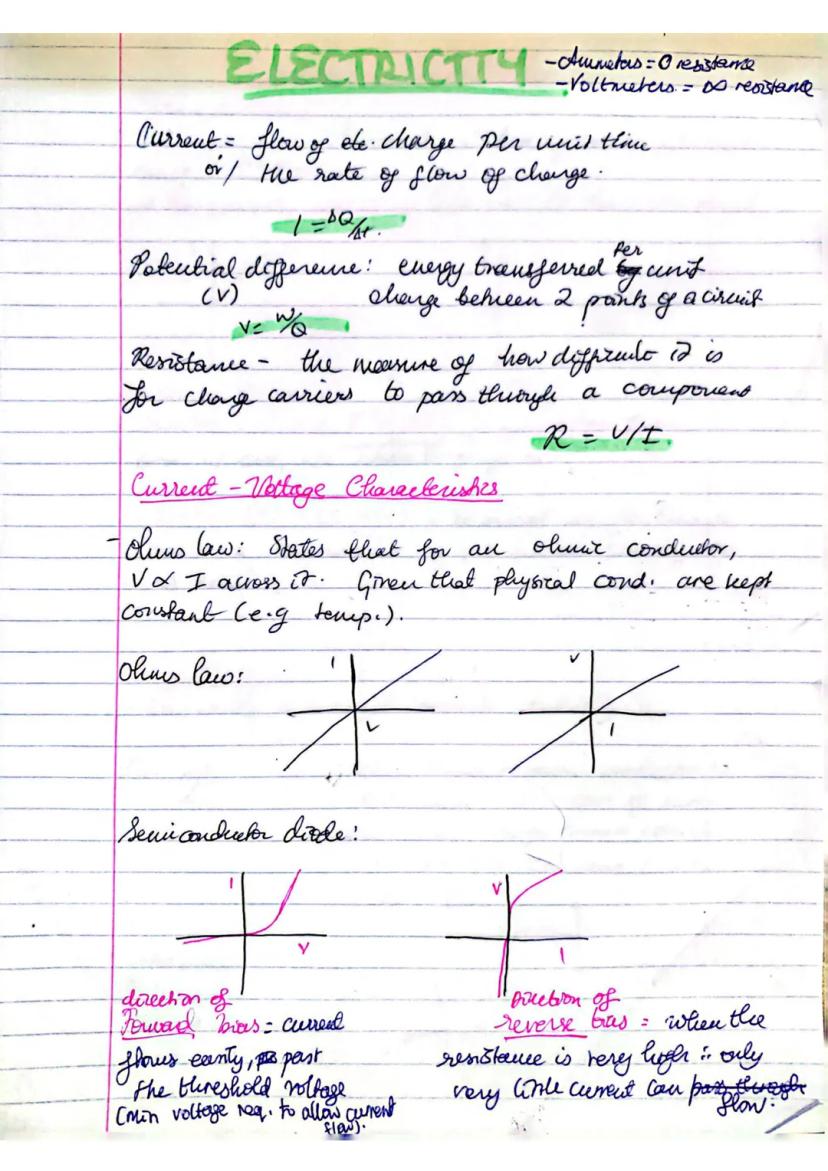 ELECTRICITY
-Ammeters = 0 resistance
-Voltmeters = ∞ resistance
Current = flow of ele. charge per unit time
or/ the rate of flow of charge.
I = ΔQ/Δt.
Potential difference: energy transferred per unit
(V) charge between 2 points of a circuit
V = W/Q
Resistance - the measure of how difficult it is
for charge carriers to pass through a component
R = V/I.
Current - Voltage Characteristics
- Ohms law: States that for an ohmic conductor,
V ∝ I across it. Given that physical cond. are kept
constant (e.g temp.).
Ohms law:
I
V
V
I
Semiconductor diode:
I
V
V
I
direction of
Forward bias = current
flows easily, past
the threshold voltage
(min voltage req. to allow current
flow).
Direction of
reverse bias = when the
resistance is very high ∴ only
very little current can pass through
flow.